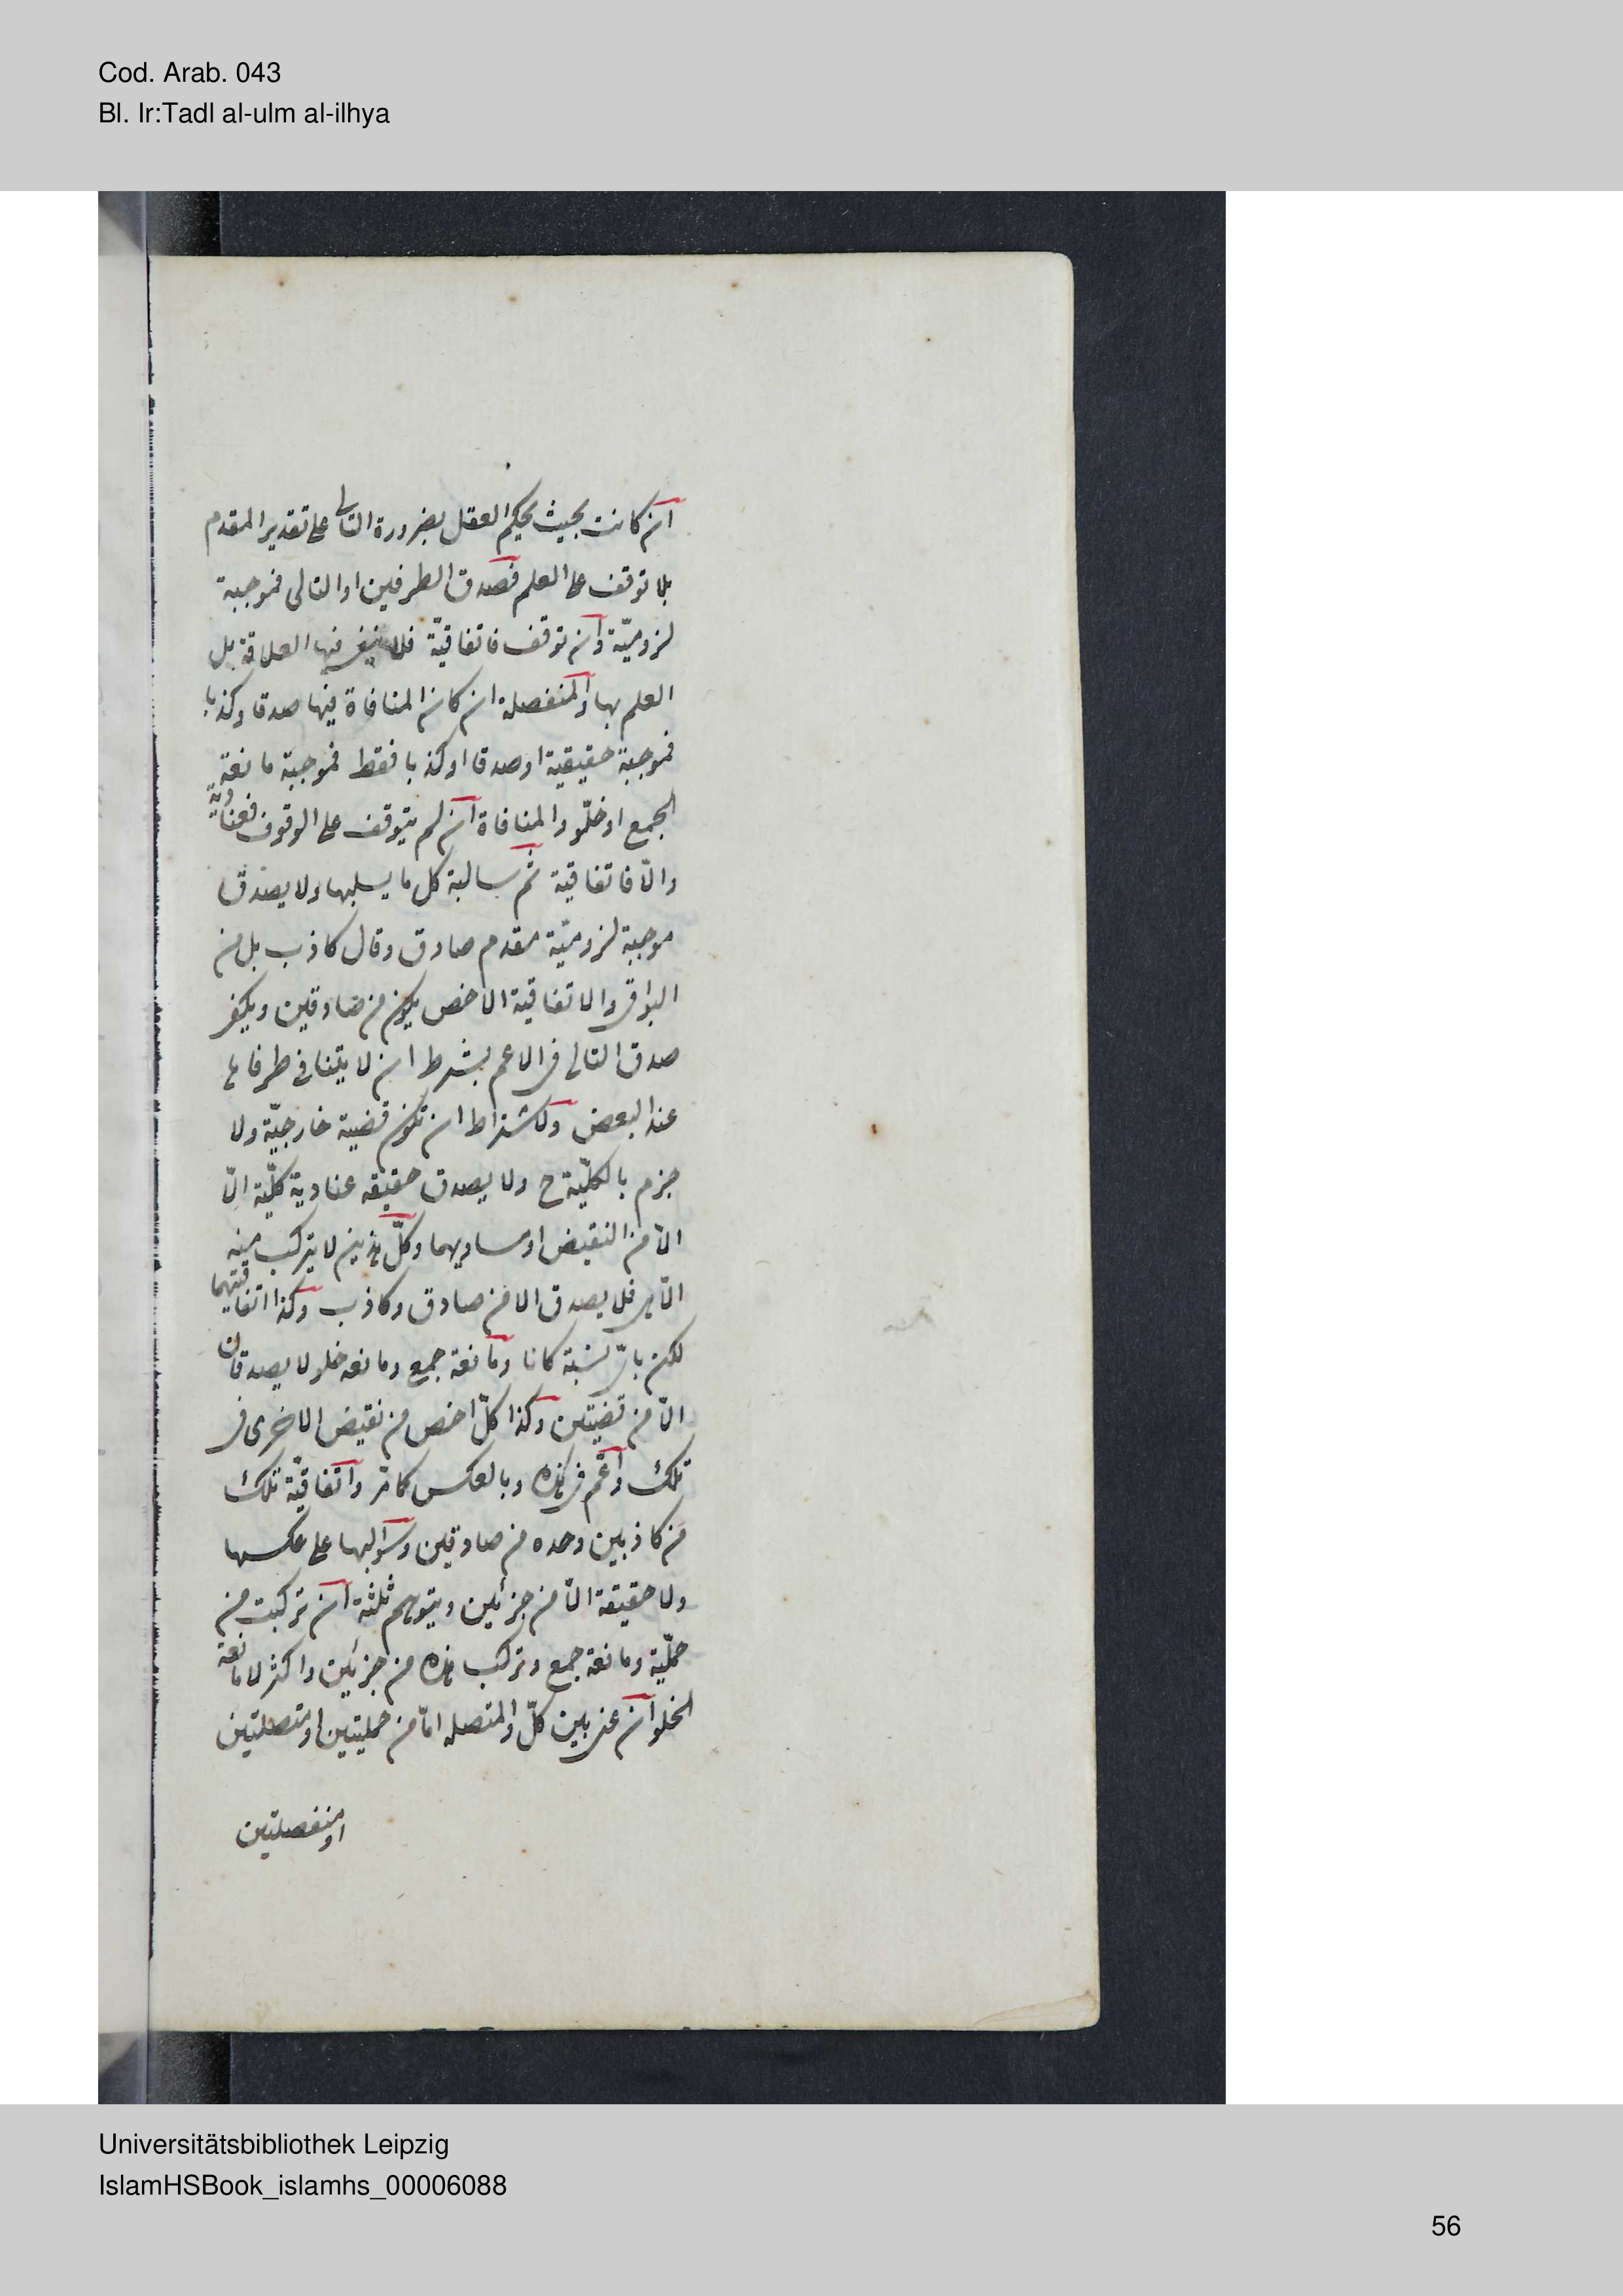 Cod. Arab. 043
Bl. Ir:Tadl al-ulm al-ilhya
ان كانت بحيث يحكم العقل بضرورة التالى على تقدير المقدم
بلا توقف على العلم فصدق الطرفين او التالى فموجبة
لزوميّة وان توقف فاتفاقيّة فلا ينفى فيها العلاقة بل
العلم بها والمنفصلة ان كان المنافاة فيها صدقا وكذبا
فموجبة حقيقية او صدقا او كذبا فقط فموجبة مانعة
الجمع او خلّو والمنافاة ان لم يتوقف على الوقوف فعنادية
والّا فاتفاقية ثم سالبة كل ما يسلبها ولا يصدق
موجبة لزوميّة مقدم صادق وتال كاذب بل من
البواقى والاتفاقية الاخص يكون من صادقين ويكفى
صدق التالى فى الاعم بشرط ان لا يتنافى طرفاها
عند البعض ولاشتراط ان تكون قضية خارجيّة ولا
جزم بالكليّة ح ولا يصدق حقيقه عنادية كليّة الّا
الّا من النقيض او مساويهما وكلّ هذين لا يتركب منه
الّا فلا يصدق الا من صادق وكاذب وكذا اتفاقيتهما
لكن باىّ نسبة كانا ومانعة جمع ومانعه خلو لا يصدقان
الّا من قضيتين وكذا كلّ اخص من نقيض الاخرى فى
تلك واعم فى هذه وبالعكس كما مرّ واتفاقيّة تلك
من كاذبين وحده من صادقين وسوالبها على عكسها
ولا حقيقة الّا من جزئين ويتوهم ثلثة ان تركبت من
حمليّة ومانعة جمع وتركب هذه من جزئين واكثر لا مانعة
الخلو ان عنى بين كلّ والمتصله امّا من حمليتين او متصلتين
او منفصلتين
Universitätsbibliothek Leipzig
IslamHSBook_islamhs_00006088
56